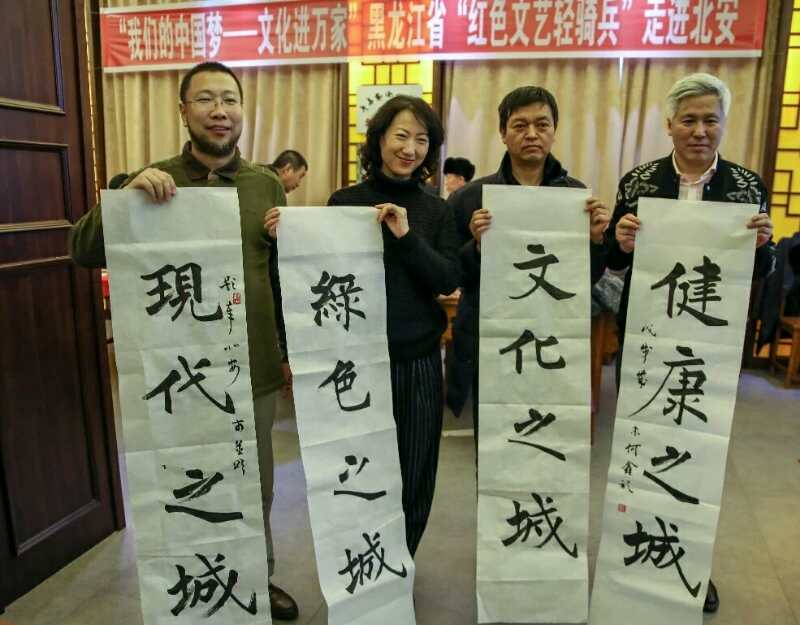 “我们的中国梦——文化进万家”黑龙江省“红色文艺轻骑兵”走进北安
現代之城
綠色之城
文化之城
健康之城